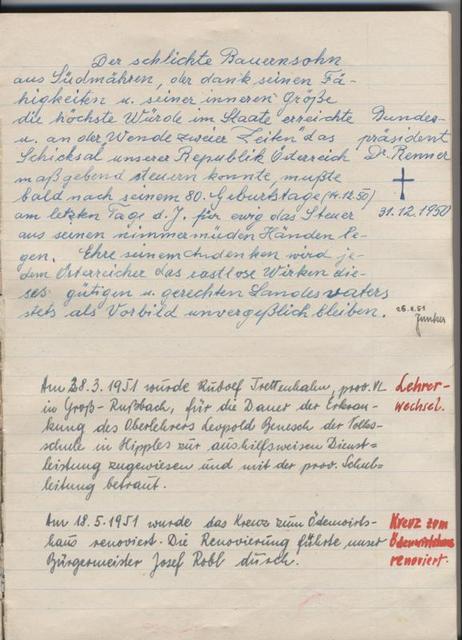 Der schlichte Bauernsohn
aus Südmähren, der dank seinen Fä-
higkeiten u. seiner inneren Größe
die höchste Würde im Staate erreichte
u. an der Wende zweier Zeiten das
Schicksal unserer Republik Österreich
maßgebend steuern konnte, mußte
bald nach seinem 80. Geburtstage (14.12.50)
am letzten Tage d. J. für ewig das Steuer
aus seinen nimmermüden Händen le-
gen. Ehre seinem Andenken wird je-
dem Österreicher das rastlose Wirken die-
ses gütigen u. gerechten Landesvaters
stets als Vorbild unvergeßlich bleiben.
Bundes-
präsident
Dr. Renner
31.12.1950
Am 28.3.1951 wurde Rudolf Trettenhahn, prov. VL
in Groß-Rußbach, für die Dauer der Erkran-
kung des Oberlehrers Leopold Benesch der Volks-
schule in Hipples zur aushilfsweisen Dienst-
leistung zugewiesen und mit der prov. Schul-
leitung betraut.
Lehrer-
wechsel.
Am 18.5.1951 wurde das Kreuz zum Ödenwirts-
haus renoviert. Die Renovierung führte unser
Bürgermeister Josef Robl durch.
Kreuz zum
Ödenwirtshaus
renoviert.